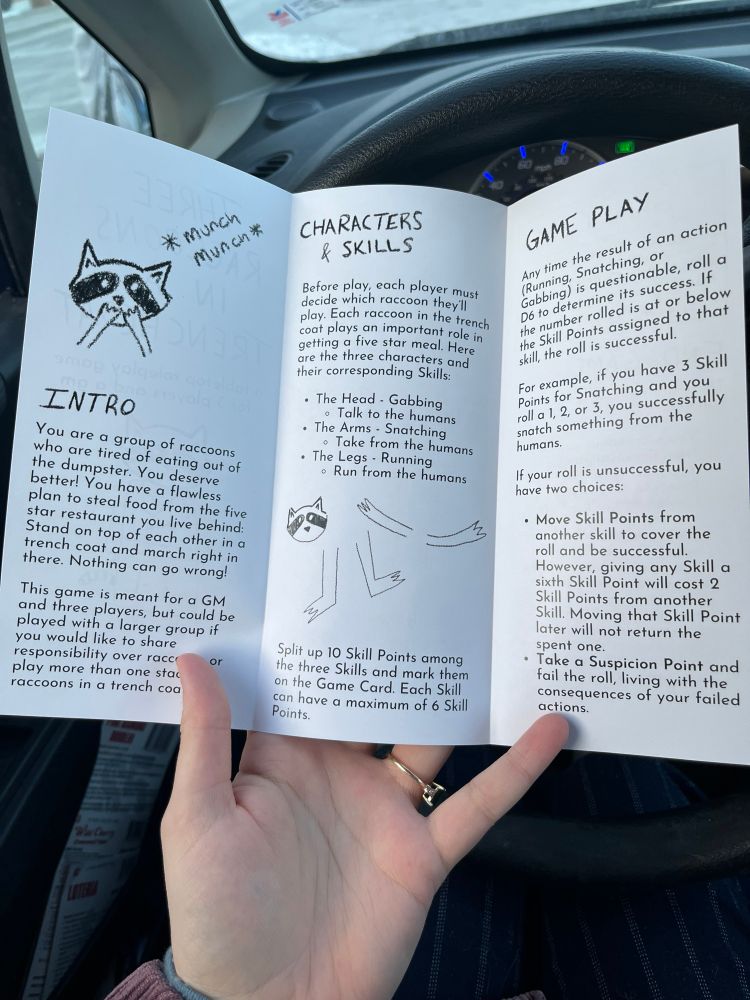 *munch
munch*
INTRO
You are a group of raccoons
who are tired of eating out of
the dumpster. You deserve
better! You have a flawless
plan to steal food from the five
star restaurant you live behind:
Stand on top of each other in a
trench coat and march right in
there. Nothing can go wrong!
This game is meant for a GM
and three players, but could be
played with a larger group if
you would like to share
responsibility over or
play more than one
raccoons in a trench
CHARACTERS
& SKILLS
Before play, each player must
decide which raccoon they'll
play. Each raccoon in the trench
coat plays an important role in
getting a five star meal. Here
are the three characters and
their corresponding Skills:
• The Head - Gabbing
◦ Talk to the humans
• The Arms - Snatching
◦ Take from the humans
• The Legs - Running
◦ Run from the humans
Split up 10 Skill Points among
the three Skills and mark them
on the Game Card. Each Skill
can have a maximum of 6 Skill
Points.
GAME PLAY
Any time the result of an action
(Running, Snatching, or
Gabbing) is questionable, roll a
D6 to determine its success. If
the number rolled is at or below
the Skill Points assigned to that
skill, the roll is successful.
For example, if you have 3 Skill
Points for Snatching and you
roll a 1, 2, or 3, you successfully
snatch something from the
humans.
If your roll is unsuccessful, you
have two choices:
• Move Skill Points from
another skill to cover the
roll and be successful.
However, giving any Skill a
sixth Skill Point will cost 2
Skill Points from another
Skill. Moving that Skill Point
later will not return the
spent one.
• Take a Suspicion Point and
fail the roll, living with the
consequences of your failed
actions.
40
60
80
LOTERIA